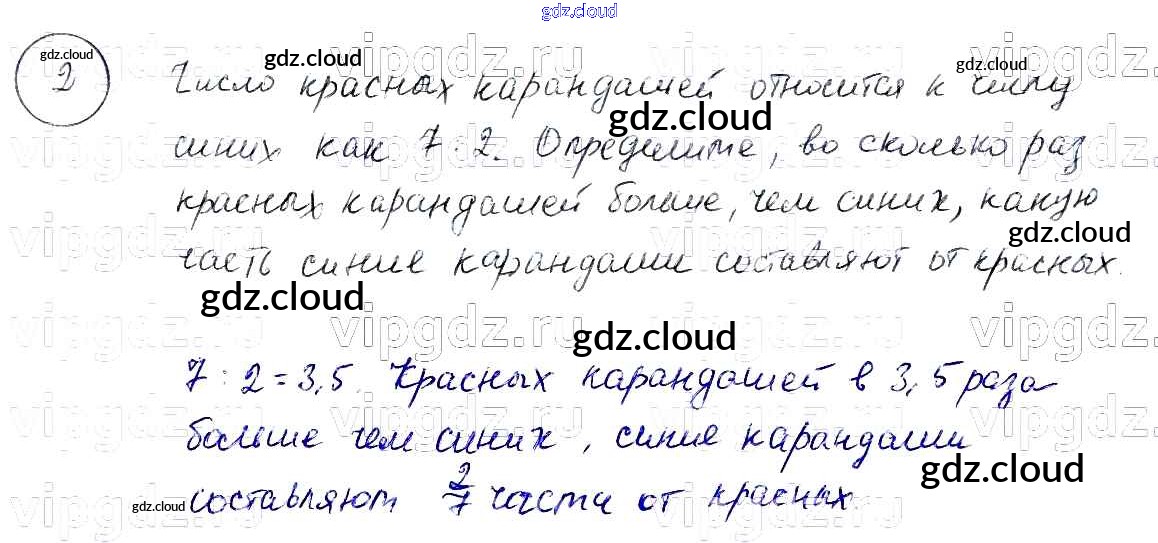 gdz.cloud
2
Число красных карандашей относится к числу
синих как 7 : 2. Определите, во сколько раз
красных карандашей больше, чем синих, какую
часть синие карандаши составляют от красных.
7 : 2 = 3,5. Красных карандашей в 3,5 раза
больше чем синих, синие карандаши
составляют 2/7 части от красных.
gdz.cloud
gdz.cloud
gdz.cloud
gdz.cloud
gdz.cloud
gdz.cloud
gdz.cloud
gdz.cloud
vipgdz.ru